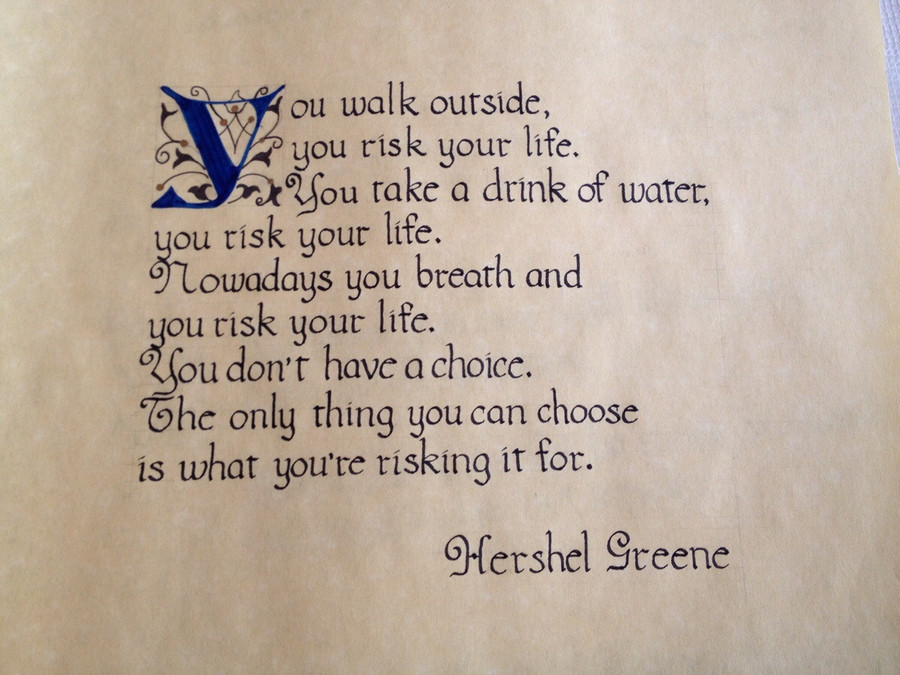 You walk outside,
you risk your life.
You take a drink of water,
you risk your life.
Nowadays you breath and
you risk your life.
You don't have a choice.
The only thing you can choose
is what you're risking it for.
Hershel Greene